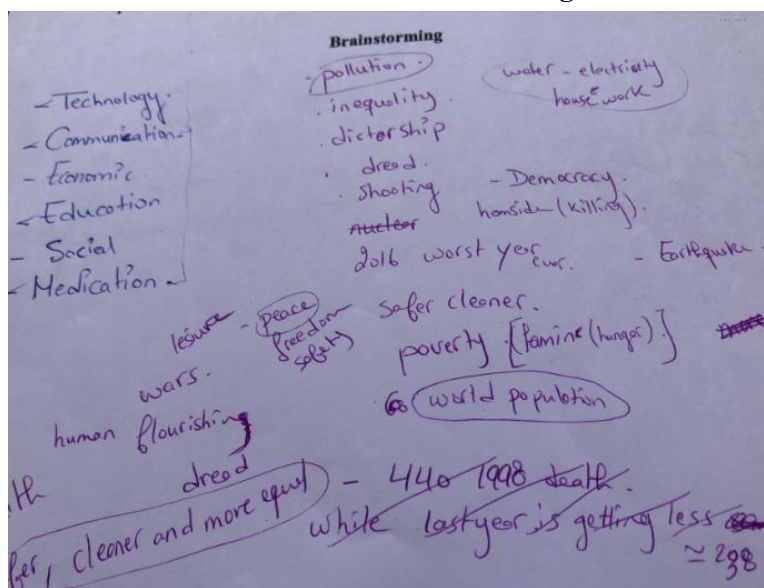 Brainstorming
- Technology.
- Communication
- Economic
- Education
- Social
- Medication
- pollution.
. inequality.
. dictership
. dread.
. shooting
nuclear
2016 worst year ever.
water - electricity
house work
- Democracy.
homside (killing).
- Earthquake.
lesiure - peace
freedom
safety
safer cleaner.
poverty [famine (hunger)]
wars.
world population
human flourishing
dread
, cleaner and more equal
- 440 1998 death.
while last year is getting less
≃ 298